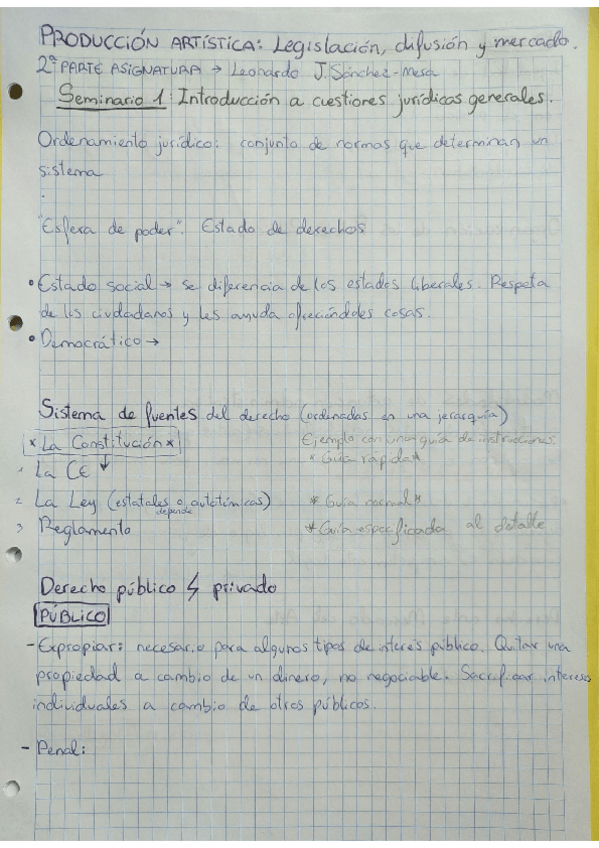 PRODUCCIÓN ARTÍSTICA: Legislación, difusión y mercado.
2ª PARTE ASIGNATURA → Leonardo J. Sánchez-Mesa
Seminario 1: Introducción a cuestiones jurídicas generales.
Ordenamiento jurídico: conjunto de normas que determinan un
sistema
"Esfera de poder". Estado de derechos
• Estado social → se diferencia de los estados liberales. Respeta
de los ciudadanos y les ayuda ofreciéndoles cosas.
• Democrático →
Sistema de fuentes del derecho (ordenadas en una jerarquía)
* La Constitución * Ejemplo con una guía de instrucciones
1 La CE ↓ * Guía rápida *
2 La Ley (estatales o autotómicas) * Guía normal *
depende
3 Reglamento * Guía especificada al detalle
Derecho público ↯ privado
PÚBLICO
- Expropiar: necesario para algunos tipos de interés público. Quitar una
propiedad a cambio de un dinero, no negociable. Sacrificar intereses
individuales a cambio de otros públicos.
- Penal: